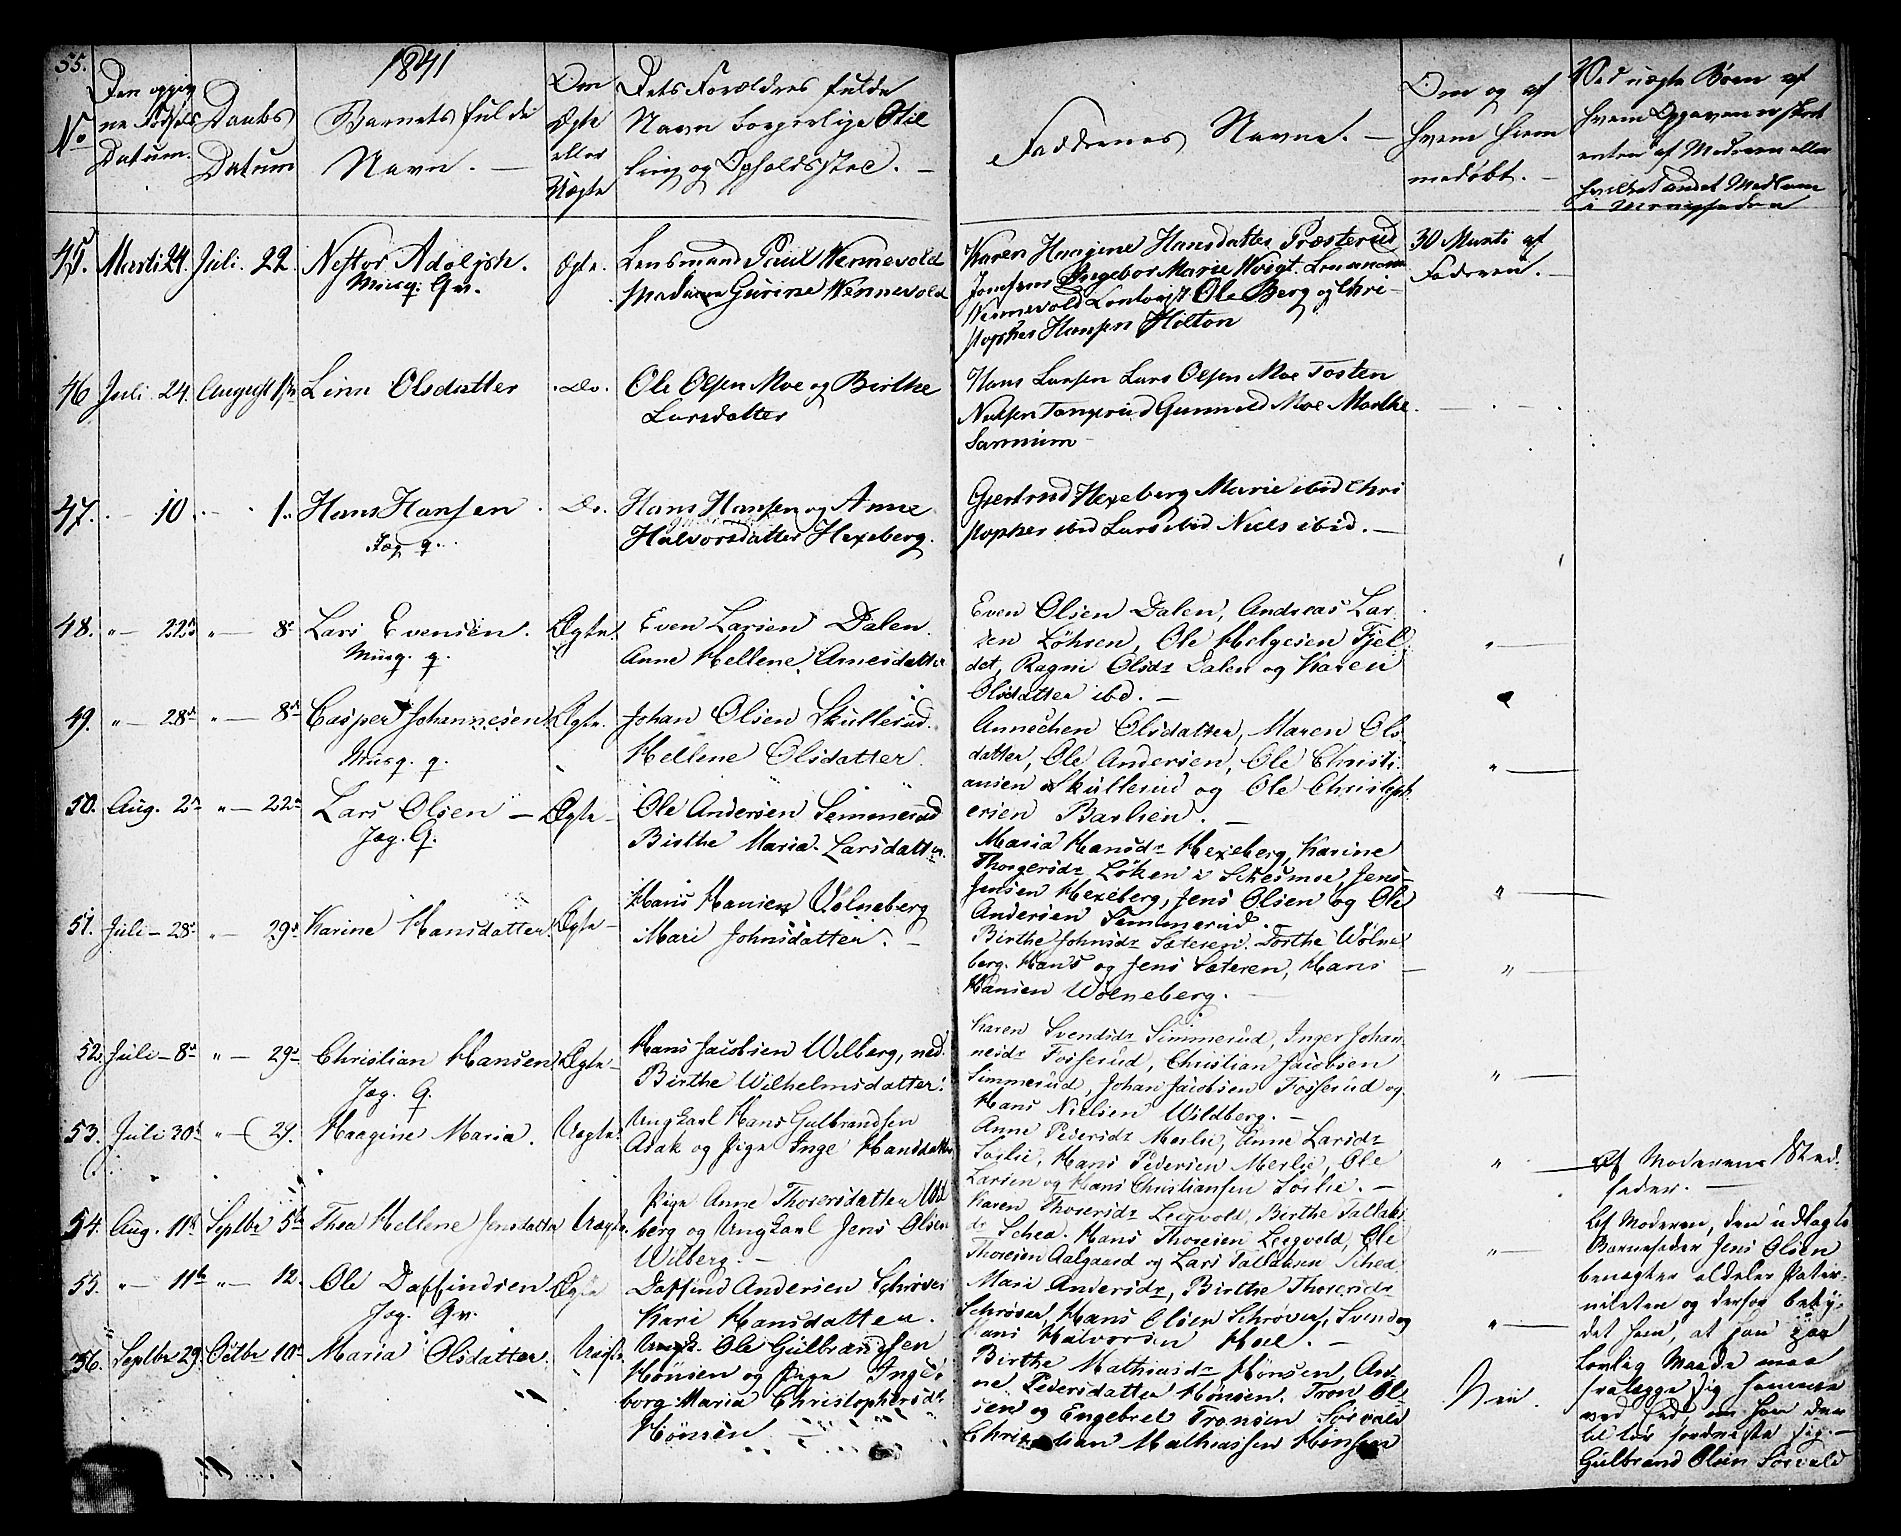 55.
1841
No
Den opgiv
ne Fødsels
Datum.
Daabs
Datum
Barnets fulde
Navn. —
Om
Ægte
eller
Uægte
Dets Forældres fulde
Navn borgerlige Stil
ling og Opholdssted. —
Faddernes Navne. —
Om og af
hvem hjem
medøbt. —
Ved uægte Børn af
hvem Opgaven er skeet
enten af Moderen eller
hvilket andet Medlem
i Menigheden
45. Marti 24. Juli. 22. Nestor Adolph. Ægte. Lensmand Paul Wennevold
Madame Gurine Wennevold
Karen Haagine Hansdatter Præsterud
Jomfrue Ingebor Marie Voigt. Lensmand
Wennevold Ole Berg og Chri-
stopher Hansen Holton
30 Marti af
Faderen. —
46 Juli 24. August 1ste Line Olsdatter Do. Ole Olsen Moe og Birthe
Larsdatter
Hans Larsen Lars Olsen Moe Tosten
Nilsen Tangerud Gunnild Moe Marthe
47. — 10 — 1. Hans Hansen Do. Hans Hansen og Anne
Jag. q.
Halvorsdatter Hexeberg.
Gjertrud Hexeberg Marie ibid Chri
stopher ibid Lars ibid Niels ibid. —
48. " — 22 " — 8de Lars Evensen. Ægte. Even Larsen Dalen.
Musq. q.
Anne Hellene Arnesdatter
Even Olsen Dalen, Andreas Lar
sen Løhren, Ole Helgesen Fjel
det, Ragni Olsdr Dalen og Karen
Olsdatter ibd. —
49. " — 28de " — 8de Casper Johannesen Ægte. Johan Olsen Skullerud.
Musq. q.
Hellene Olsdatter.
Annechen Olsdatter, Maren Ols
datter, Ole Andersen, Ole Christi
ansen Skullerud og Ole Christoph
ersen Barlien. —
50. Aug. 2de " — 22de Lars Olsen — Ægte — Ole Andersen Semmerud
Jag. Q.
Birthe Maria Larsdatter.
Maria Hansdr Hexeberg, Karine
Thorgersdr Løken i Schesmoe, Jens
Jensen Hexeberg, Jens Olsen og Ole
Andersen Semmerud.
51. Juli — 28de " — 29de Karine Hansdatter. Ægte — Hans Hansen Wolneberg
Mari Johnsdatter. —
Birthe Johnsdr Sæteren. Dorthe Wolne
berg. Hans og Jens Sæteren, Hans
Hansen Wolneberg. —
52. Juli — 8de " — 29de Christian Hansen Ægte — Hans Jacobsen Wilberg, ned.
Jag. Q.
Birthe Wilhelmsdatter.
Karen Svendsdr Simmerud, Inger Johan
nesdr Fosserud, Christian Jacobsen
Simmerud, Johan Jacobsen Fosserud og
Hans Nielsen Wildberg. —
53. Juli 30te " — 29. Haagine Maria. Uægte. Ungkarl Hans Gulbrandsen
Asak og Pige Inge Hansdatter
Anne Pedersdr Merlie, Anne Larsdr
Sørlie, Hans Pedersen Merlie, Ole
Larsen og Hans Christiansen Sørlie. —
Af Moderens Sted-
fader. —
54. Aug. 11te Septbr 5te Thea Hellene Jensdatter Uægte. Pige Anne Thoresdatter Wil
berg og Ungkarl Jens Olsen
Wilberg. —
Karen Thoresdr Leegvold, Birthe Taltaks
dr Schea. Hans Thoresen Leegvold, Ole
Thoresen Aalgaard og Lars Taltaksen Schea
Af Moderen, den udlagte
Barnefader Jens Olsen
benegter aldeles Pater-
niteten og derfor bety-
det ham, at han paa
lovlig Maade maa
fralægge sig samme
ved Eed, om han der
til tør fordriste sig. —
55. " — 11te " — 12. Ole Daffindsen Ægte Daffind Andersen Schrøver
Jag. Qv.
Kari Hansdatter.
Mari Andersdr, Birthe Thoresdr
Schrøver, Hans Olsen Schrøver, Svend og
Hans Halvorsen Hoel. —
56. Septbr 29. Octbr 10de Maria Olsdatter. Uægte Ungk. Ole Gulbrandsen
Hønsen og Pige Inge-
borg Maria Christophersdr
Hønsen —
Birthe Mathiasdr Hønsen, An-
ne Pedersdatter Hønsen. Tron Ol-
sen og Engebret Tronsen Sørvald
Christian Mathiassen Hønsen
Nei.
Gulbrand Olsen Sørvald